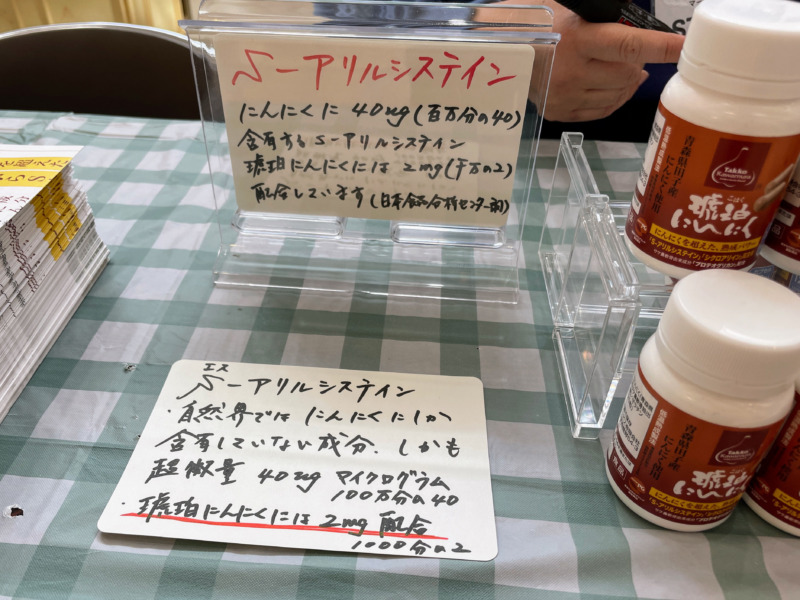 S-アリルシステイン
にんにくに 40mg(百万分の40)
含有するS-アリルシステイン
琥珀にんにくには 2mg(千分の2)
配合しています(日本食品分析センター調)
エス
S-アリルシステイン
・自然界では にんにくにしか
含有していない成分. しかも
超微量 40mg マイクログラム
100万分の40
・琥珀にんにくには 2mg 配合
1000分の2
青森県田子産
にんにく使用
Takko
こはく
琥珀
にんにく
にんにくを超えた、熟成パワー
「S-アリルシステイン」「シクロアリイン」
「プロテオグリカン」
青森県田子産
にんにく使用
Takko
琥珀
にんにく
にんにくを超えた、
「S-アリルシステイン」